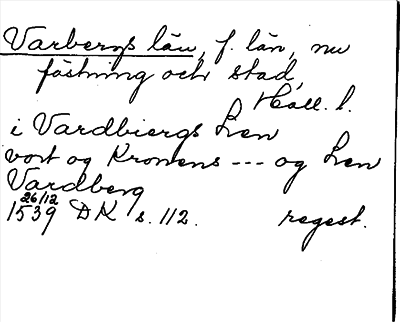 Varbergs län, f. län, nu
fästning och stad,
Hall. l.
i Vardbiergs Len
vort og Kronens --- og Len
Vardberg
26/12
1539 DK s. 112. regest.